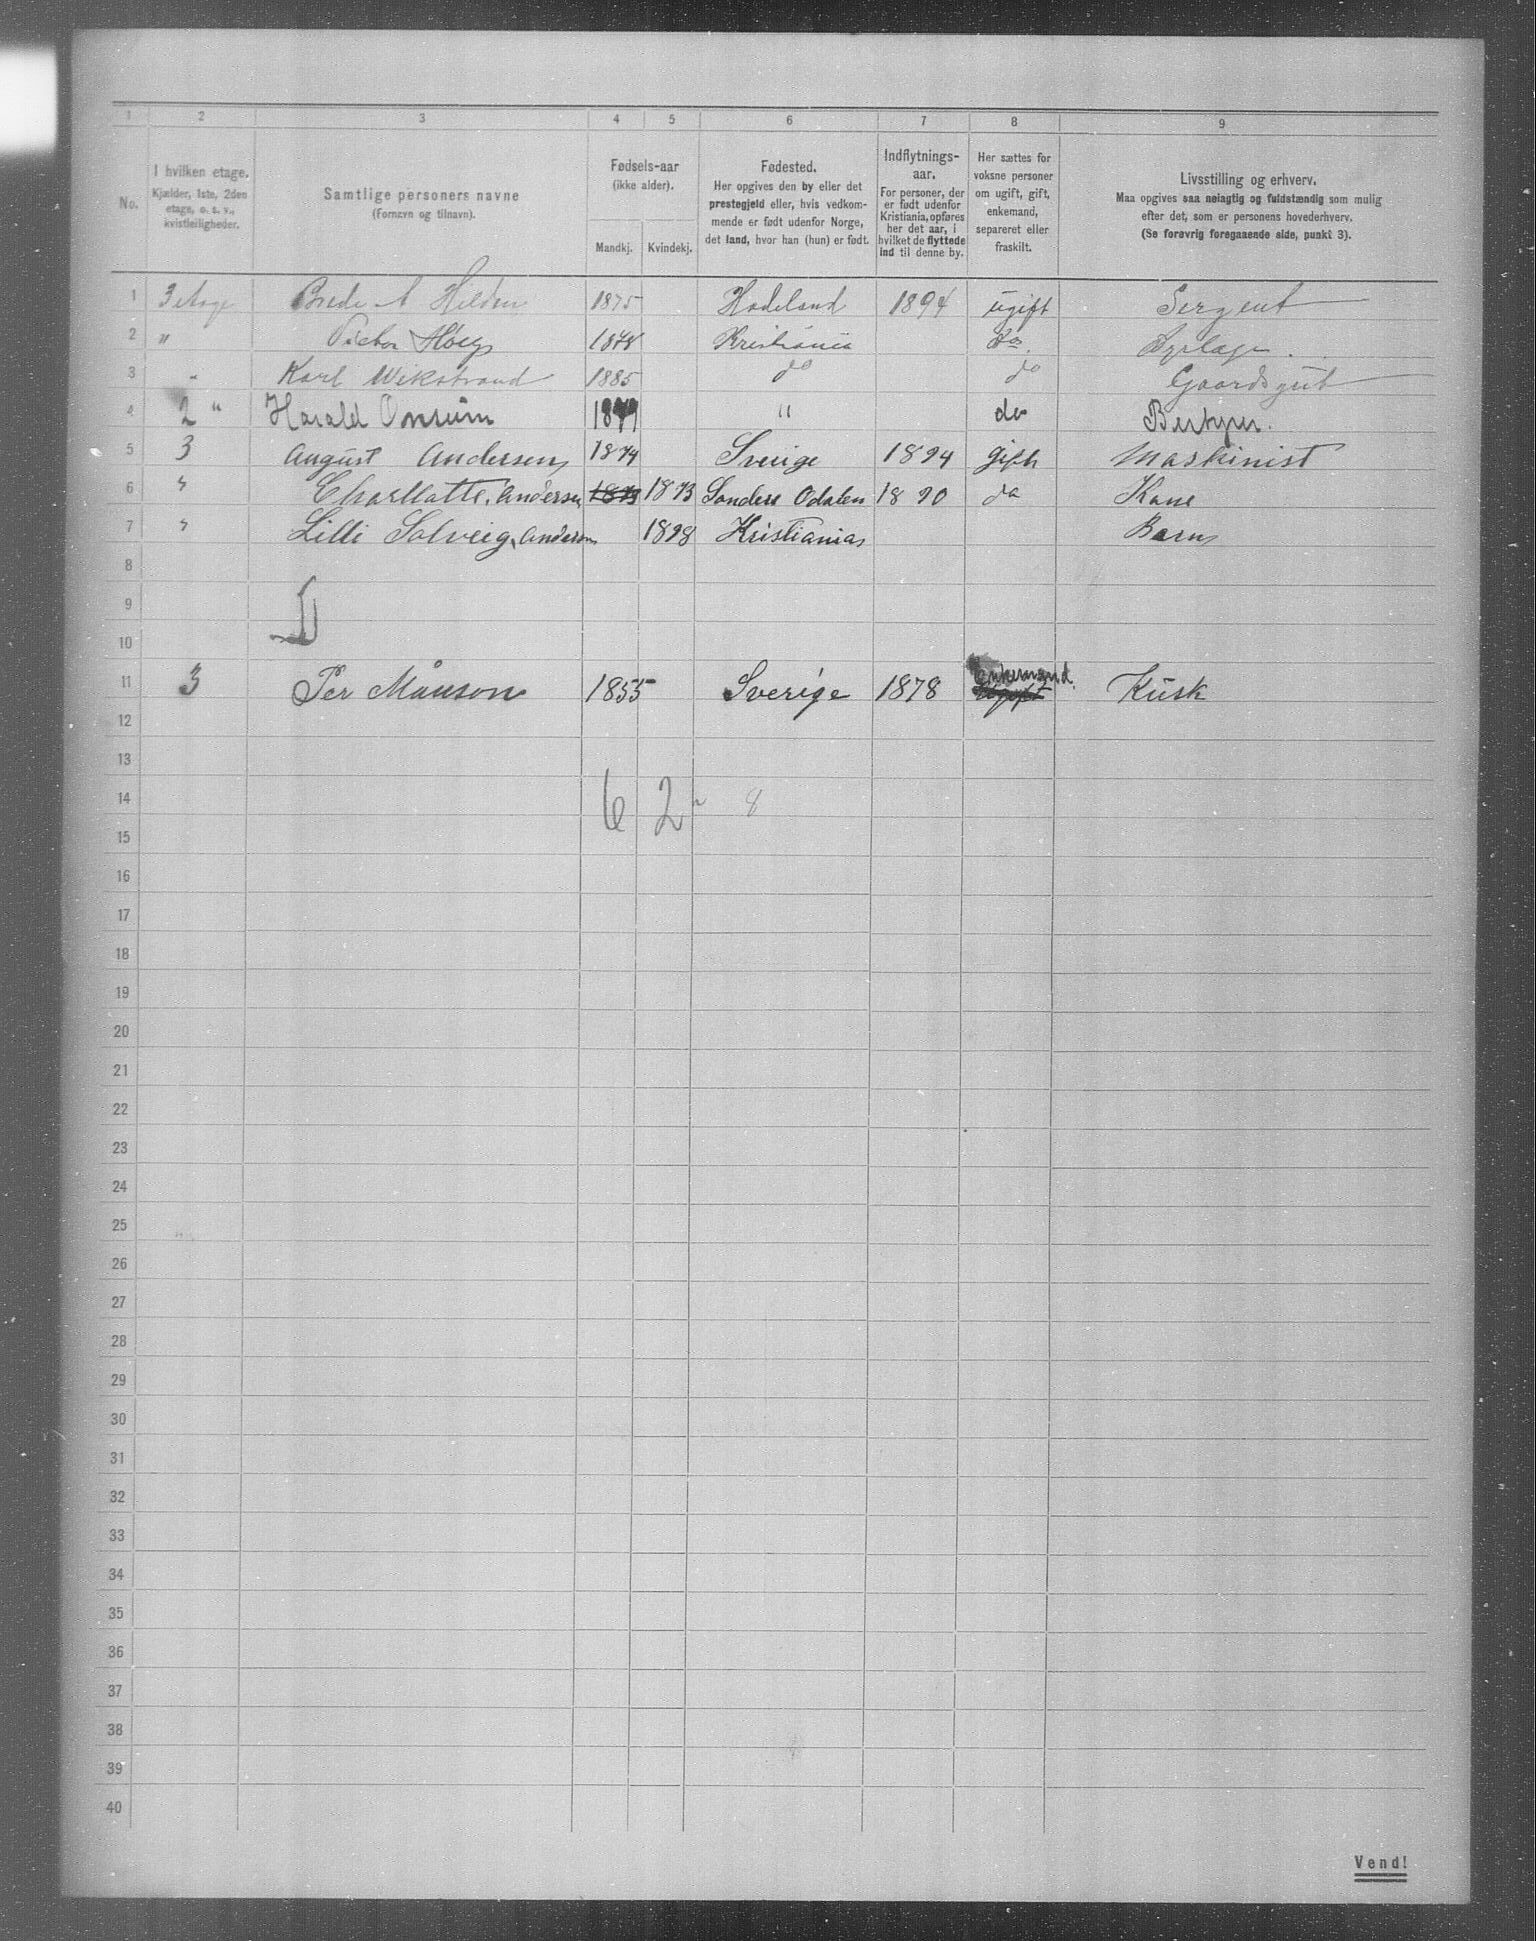 1 2 3 4 5 6 7 8 9
No.
I hvilken etage.
Kjælder, 1ste, 2den
etage, o. s. v.,
kvistleiligheder.
Samtlige personers navne
(Fornavn og tilnavn).
Fødsels-aar
(ikke alder).
Mandkj. Kvindekj.
Fødested.
Her opgives den by eller det
prestegjeld eller, hvis vedkom-
mende er født udenfor Norge,
det land, hvor han (hun) er født.
Indflytnings-
aar.
For personer, der
er født udenfor
Kristiania, opføres
her det aar, i
hvilket de flyttede
ind til denne by.
Her sættes for
voksne personer
om ugift, gift,
enkemand,
separeret eller
fraskilt.
Livsstilling og erhverv.
Maa opgives saa nøiagtig og fuldstændig som mulig
efter det, som er personens hovederhverv.
(Se forøvrig foregaaende side, punkt 3).
1 3 etage Brede A Hilden 1875 Hadeland 1894 ugift Sergent
2 " Victor Høeg 1878 Kristiania do.
3 " Karl Wikstrand 1885 do do Gaardsgut
4 2 " Harald Onsum " do
5 3 August Andersen 1874 Sverige 1894 gift Maskinist
6 " Charllatte. Andersen 1873 1873 Sondere Odalen 1890 da Kone
7 " Lilli Solveig Andersen 1898 Kristiania Barn
8
9
10
11 3 Per Månson 1855 Sverige 1878 Enkemand. Ugift Kusk
12
13
14 6 2 " 8
15
16
17
18
19
20
21
22
23
24
25
26
27
28
29
30
31
32
33
34
35
36
37
38
39
40
Vend!